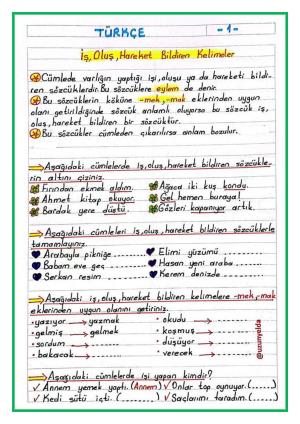 TÜRKÇE -1-
İş, Oluş, Hareket Bildiren Kelimeler
Cümlede varlığın yaptığı işi, oluşu ya da hareketi bildi-
ren sözcüklerdir. Bu sözcüklere eylem de denir.
Bu sözcüklerin köküne -mek, -mak eklerinden uygun
olanı getirildiğinde sözcük anlamlı oluyorsa bu sözcük iş,
oluş, hareket bildiren bir sözcüktür.
Bu sözcükler cümleden çıkarılırsa anlam bozulur.
Aşağıdaki cümlelerde iş, oluş, hareket bildiren sözcükle-
rin altını çiziniz.
Fırından ekmek aldım. Ağaca iki kuş kondu.
Ahmet kitap okuyor. Gel hemen buraya!
Bardak yere düştü. Gözleri kapanıyor artık.
Aşağıdaki cümleleri iş, oluş, hareket bildiren sözcüklerle
tamamlayınız.
Arabayla pikniğe ........ Elimi yüzümü ........
Babam eve geç ........ Hasan yeni araba ........
Serkan resim ........ Kerem denizde ........
Aşağıdaki iş, oluş, hareket bildiren kelimelere -mek, -mak
eklerinden uygun olanını getiriniz.
yazıyor → yazmak okudu →
gelmiş → gelmek koşmuş →
sordum → düşüyor →
bakacak → verecek →
@uzunyolda
Aşağıdaki cümlelerde işi yapan kimdir?
Annem yemek yaptı. (Annem) Onlar top oynuyor. (......)
Kedi sütü içti. (......) Saçlarımı taradım. (......)